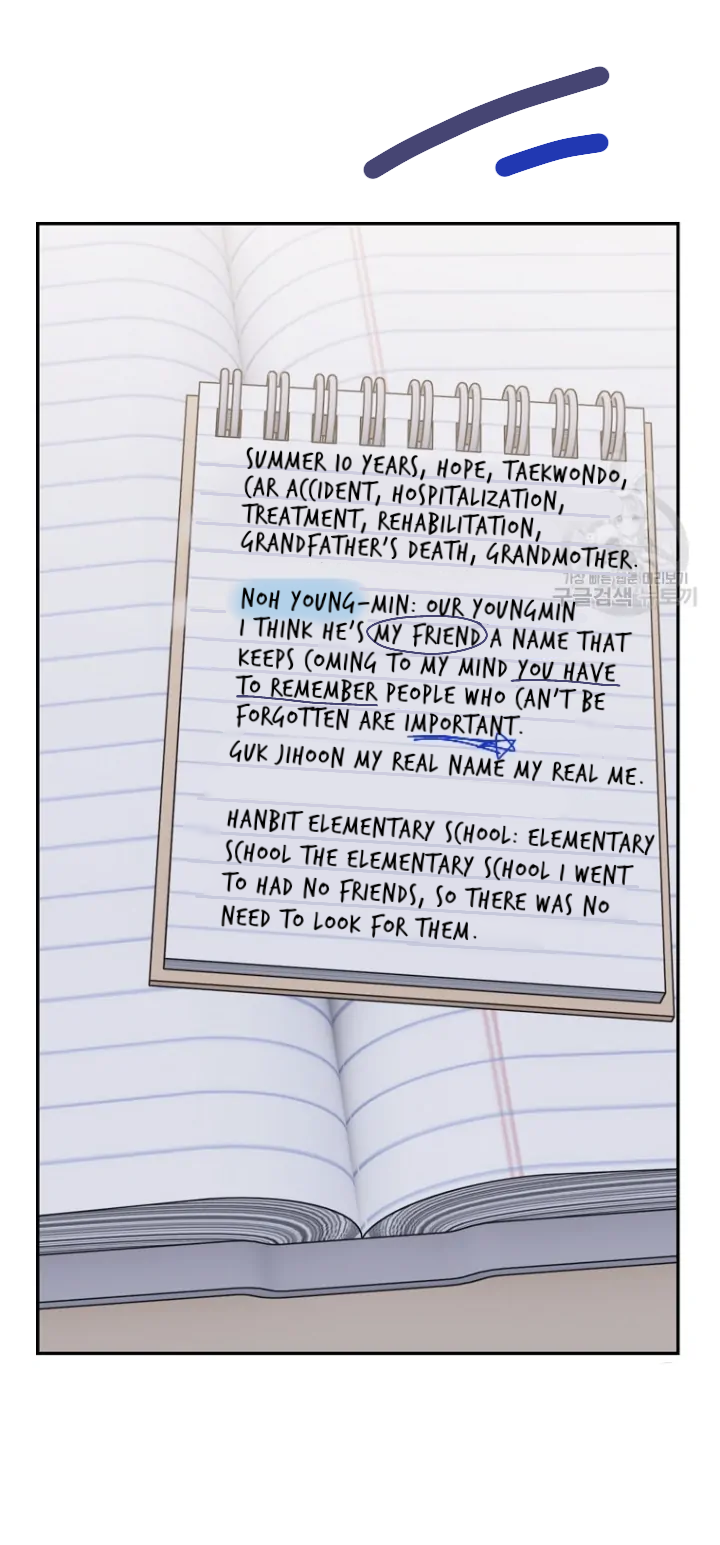 SUMMER 10 YEARS, HOPE, TAEKWONDO,
CAR ACCIDENT, HOSPITALIZATION,
TREATMENT, REHABILITATION,
GRANDFATHER'S DEATH, GRANDMOTHER.
NOH YOUNG-MIN: OUR YOUNGMIN
I THINK HE'S MY FRIEND A NAME THAT
KEEPS COMING TO MY MIND YOU HAVE
TO REMEMBER PEOPLE WHO CAN'T BE
FORGOTTEN ARE IMPORTANT.
GUK JIHOON MY REAL NAME MY REAL ME.
HANBIT ELEMENTARY SCHOOL: ELEMENTARY
SCHOOL THE ELEMENTARY SCHOOL I WENT
TO HAD NO FRIENDS, SO THERE WAS NO
NEED TO LOOK FOR THEM.
가장 빠른 웹툰 미리보기
구글검색 뉴토끼